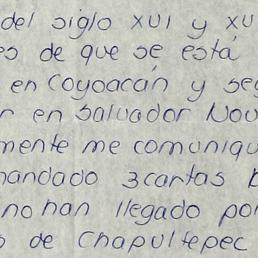 del siglo XVI y XV
es de que se está
en Coyoacán y se
r en Salvador Nov
mente me comuniqu
mandado 3 cartas
no han llegado po
de Chapultepec